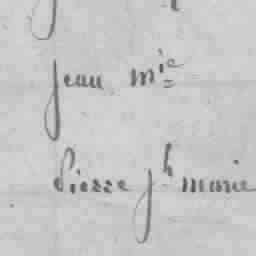 jean mie
Pierre jh marie